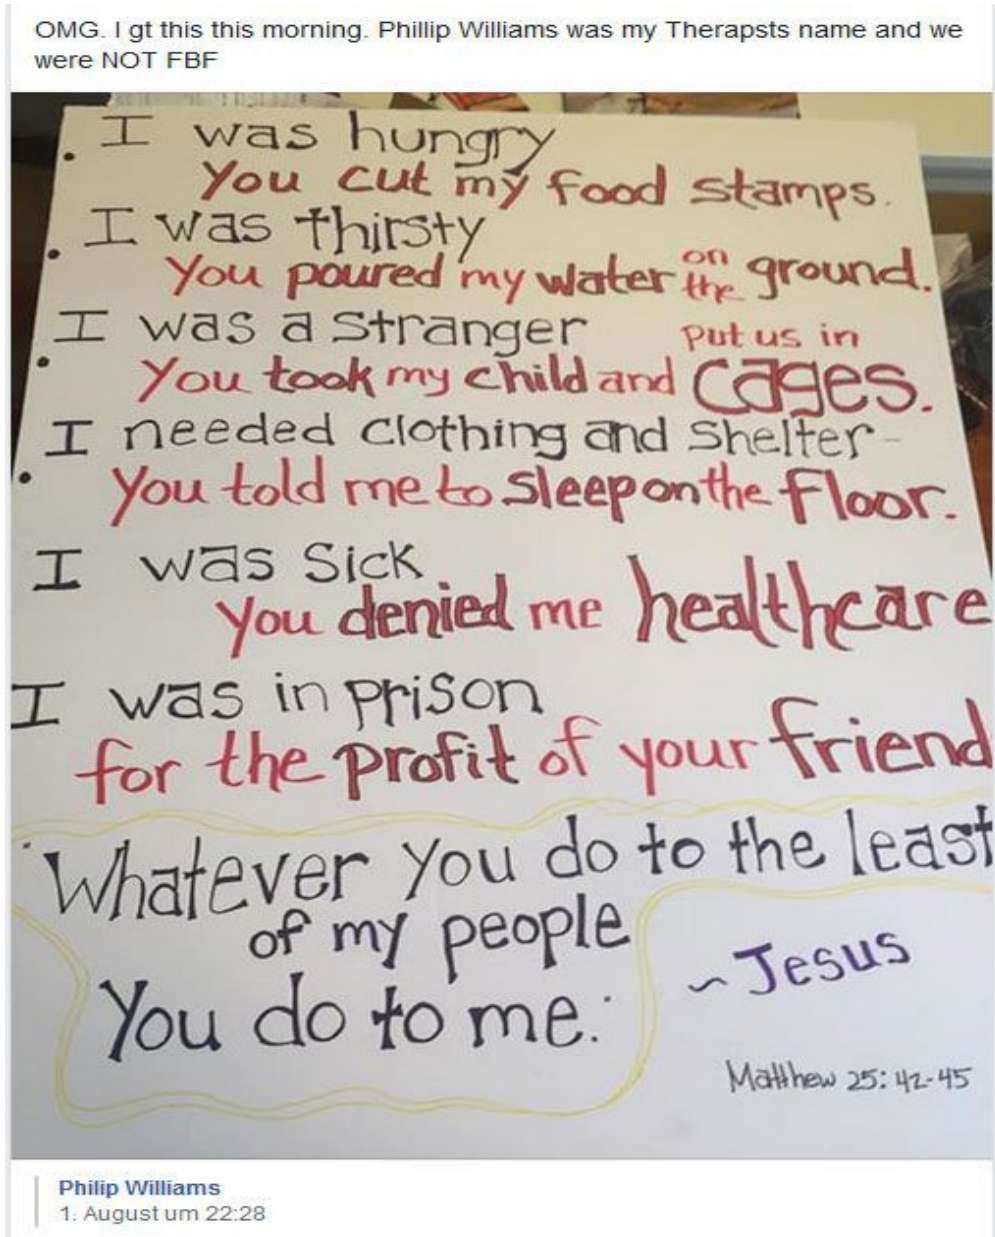 OMG. I gt this this morning. Phillip Williams was my Therapsts name and we
were NOT FBF
• I was hungry
You cut my food stamps.
• I was thirsty
You poured my water on the ground.
• I was a stranger
You took my child and put us in cages.
• I needed clothing and shelter-
You told me to sleep on the floor.
I was sick
you denied me healthcare
I was in prison
for the profit of your friend
Whatever you do to the least
of my people
You do to me.
~ Jesus
Matthew 25: 42-45
Philip Williams
1. August um 22:28